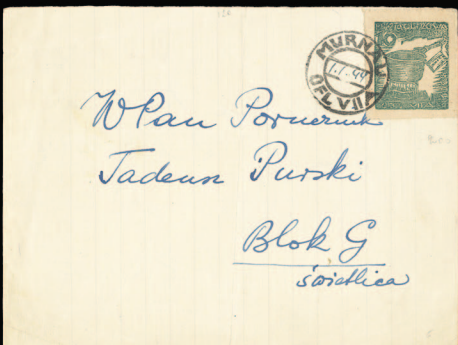 MURNAU
1.1.44
OFL VIIA
10
WPan Porucznik
Tadeusz Purski
Blok G
świetlica